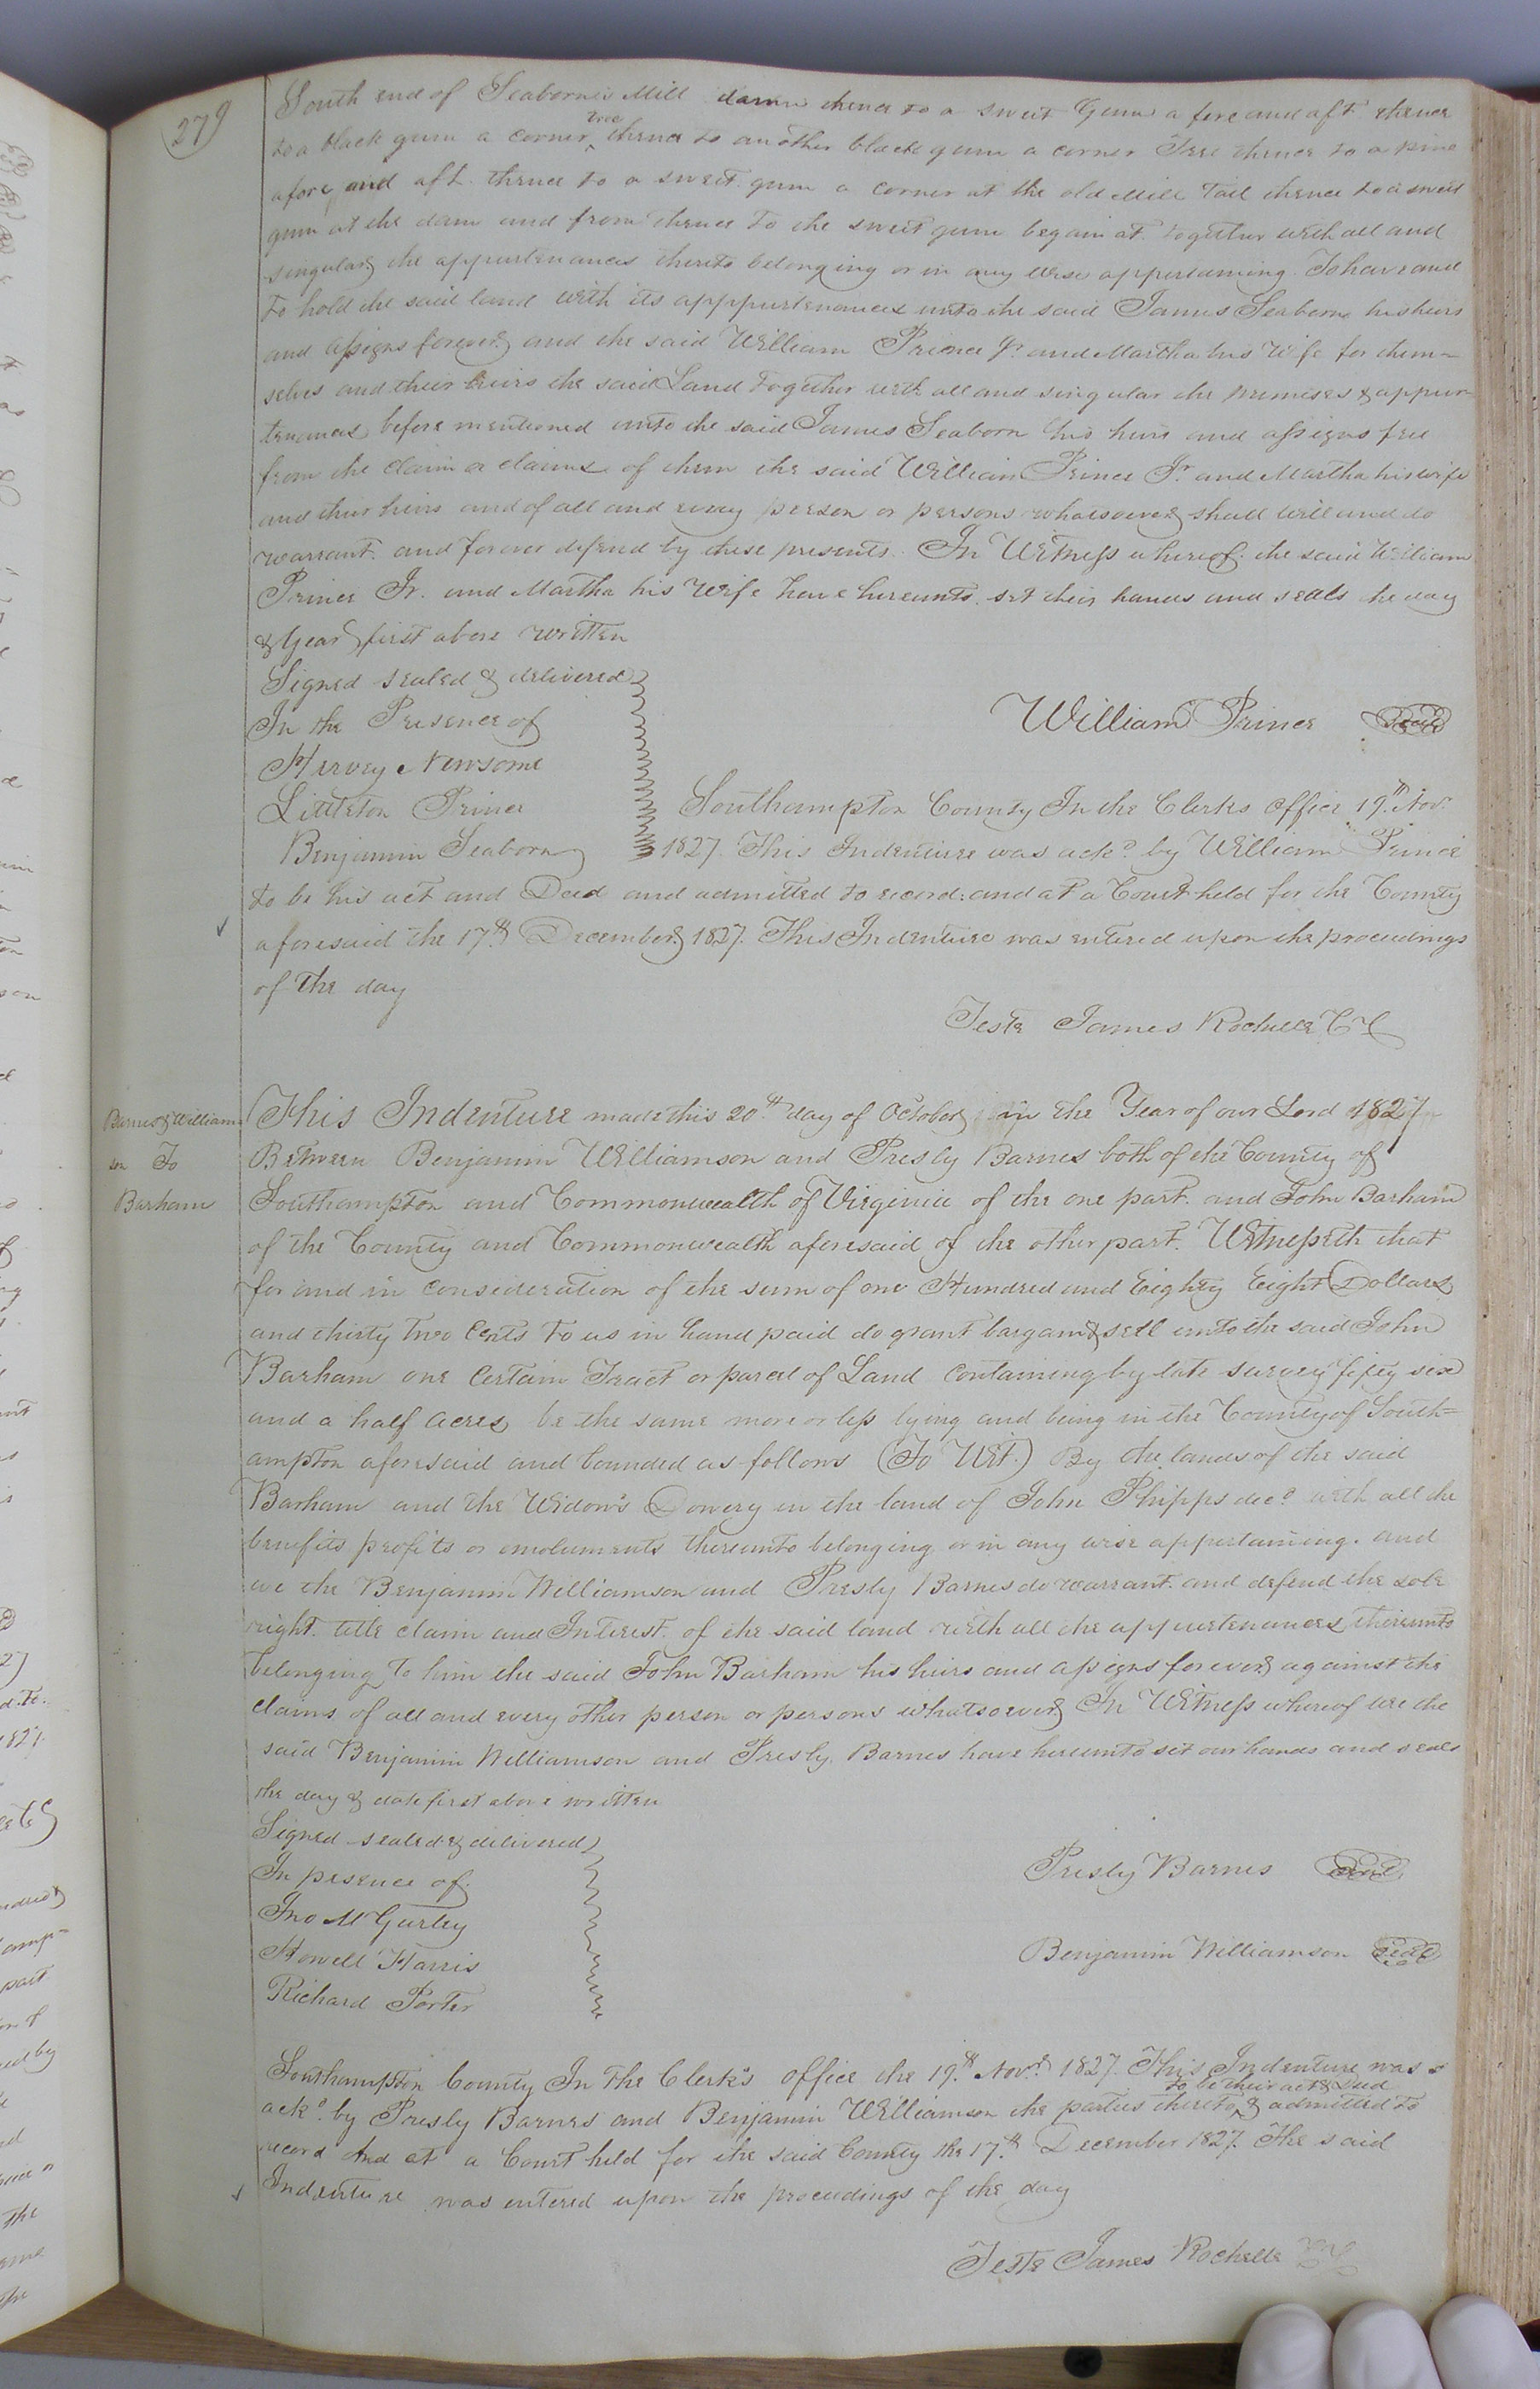 279
South end of Seaborn's Mill damn thence to a sweet Gum a fore and aft. thence
to a black gum a corner tree thence to another black gum a corner Tree thence to a pine
afore, and aft. thence to a sweet gum a corner at the old Mill Tail thence to a sweet
gum at the dam and from thence to the sweet gum began at. together with all and
singular the appurtenances thereto belonging or in any wise appertaining. To have and
to hold the said land with its apppurtenances unto the said James Seaborn his heirs
and assigns forever, and the said William Prince Jr. and Martha his Wife for them-
selves and their heirs the said Land together with all and singular the premises & appur-
tenances before mentioned unto the said James Seaborn his heirs and assigns free
from the claim or claims of them the said William Prince Jr. and Martha his wife
and their heirs and of all and every person or persons whatsoever shall will and do
warrant and forever defend by these presents. In Witness whereof. the said William
Prince Jr. and Martha his Wife have hereunto set their hands and seals he day
& Year first above written
Signed sealed & delivered
In the Presence of
William Prince Seal
Hervey Newsome
Littleton Prince
Benjamin Seaborn
Southampton County In the Clerks Office 19th Nov.
1827. This Indenture was ackd. by William Prince
to be his act and Deed and admitted to record: and at a Court held for the County
aforesaid the 17th December 1827. This Indenture was entered upon the proceedings
of the day
Teste James Rochelle CC
Barnes & William
son To
Barham
This Indenture made this 20th day of October in the Year of our Lord 1827
Between Benjamin Williamson and Presly Barnes both of the County of
Southampton and Commonwealth of Virginia of the one part. and John Barham
of the County and Commonwealth aforesaid of the other part. Witnesseth that
for and in consideration of the sum of one Hundred and Eighty Eight Dollars
and thirty Two Cents to us in hand paid do grant bargain & sell unto the said John
Barham one Certain Tract or parcel of Land Containing by late survey fifty six
and a half acres be the same more or less lying and being in the County of South=
ampton aforesaid and bounded as follows (To Wit.) By the lands of the said
Barham and the Widow's Dowery in the land of John Phipps decd. with all the
benefits profits or emoluments thereunto belonging or in any wise appertaining. and
we the Benjamin Williamson and Presly Barnes do warrant and defend the sole
right. title claim and Interest. of the said land with all the appurtenances thereunto
belonging to him the said John Barham his heirs and assigns forever, against the
claims of all and every other person or persons whatsoever In Witness whereof we the
said Benjamin Williamson and Presly Barnes have hereunto set our hands and seals
the day & date first above written
Signed sealed & delivered
In presence of.
Presly Barnes Seal
Jno M Gurley
Howell Harris
Benjamin Williamson Seal
Richard Porter
Southampton County In the Clerk's office the 19th. Novr. 1827. This Indenture was
to be their act & Deed
ackd. by Presly Barnes and Benjamin Williamson the parties thereto, & admitted to
record And at a Court held for the said County the 17th December 1827. The said
Indenture was entered upon the proceedings of the day
Teste James Rochelle CC